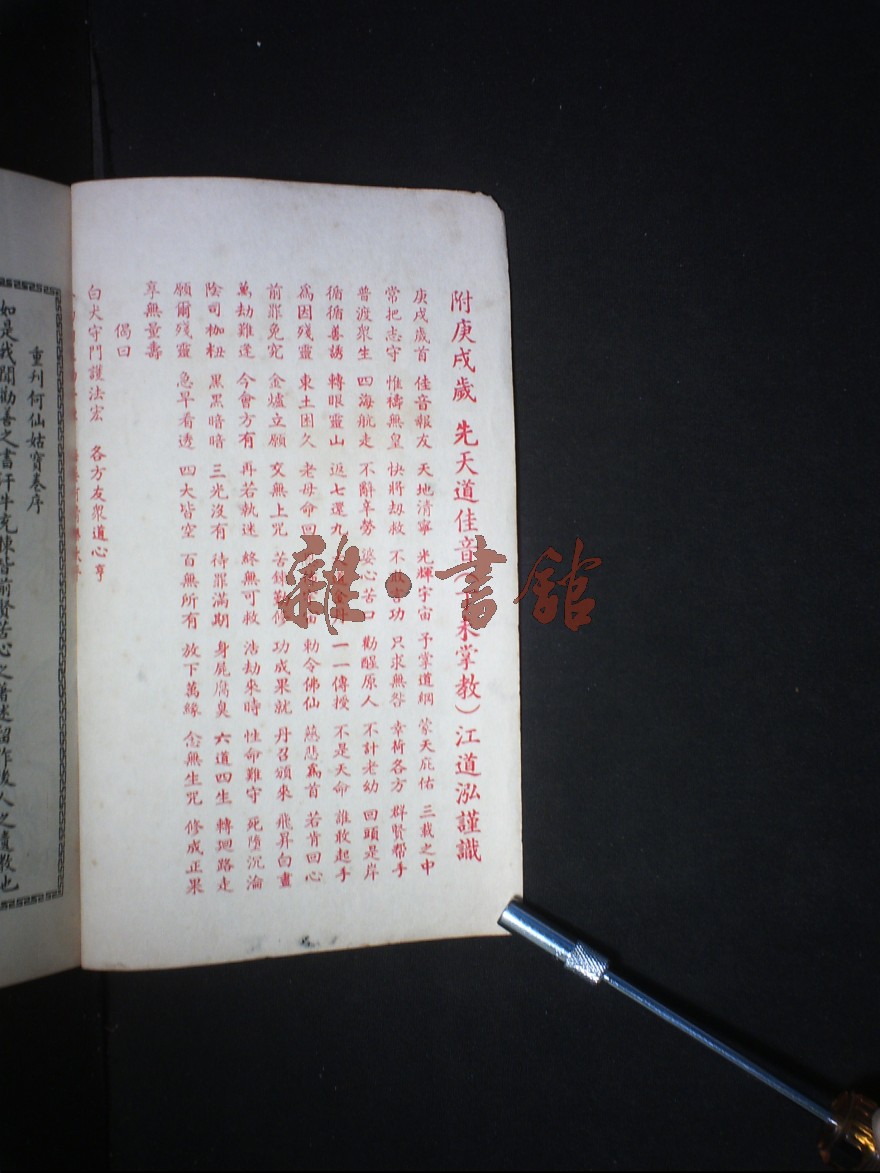 附庚戌歲 先天道佳音 來掌教）江道泓謹識
庚戌歲首 佳音報友 天地清寧 光輝宇宙 予掌道綱 蒙天庇佑 三載之中
常把志守 惟禱無皇 快將劫救 不敢言功 只求無咎 幸荷各方 群賢幫手
普渡眾生 四海航走 不辭辛勞 婆心苦口 勸醒原人 不計老幼 回頭是岸
循循善誘 轉眼靈山 返七還九 一一傳授 不是天命 誰敢起手
為因殘靈 東土困久 老母命回 勅令佛仙 慈悲為首 若肯回心
前罪免究 金爐立願 交無上咒 苦 勤修 功成果就 丹召頒來 飛昇白晝
萬劫難逢 今會方有 再若執迷 終無可救 浩劫來時 性命難守 死墮沉淪
陰司枷杻 黑黑暗暗 三光沒有 待罪滿期 身屍腐臭 六道四生 轉迴路走
願爾殘靈 急早看透 四大皆空 百無所有 放下萬緣 念無生咒 修成正果
享無量壽
偈曰
白犬守門護法宏 各方友眾道心亨
重刊何仙姑寶卷序
如是我聞勸善之書汗牛充棟皆前賢苦心之著述留作後人之遺教也
雜·書館